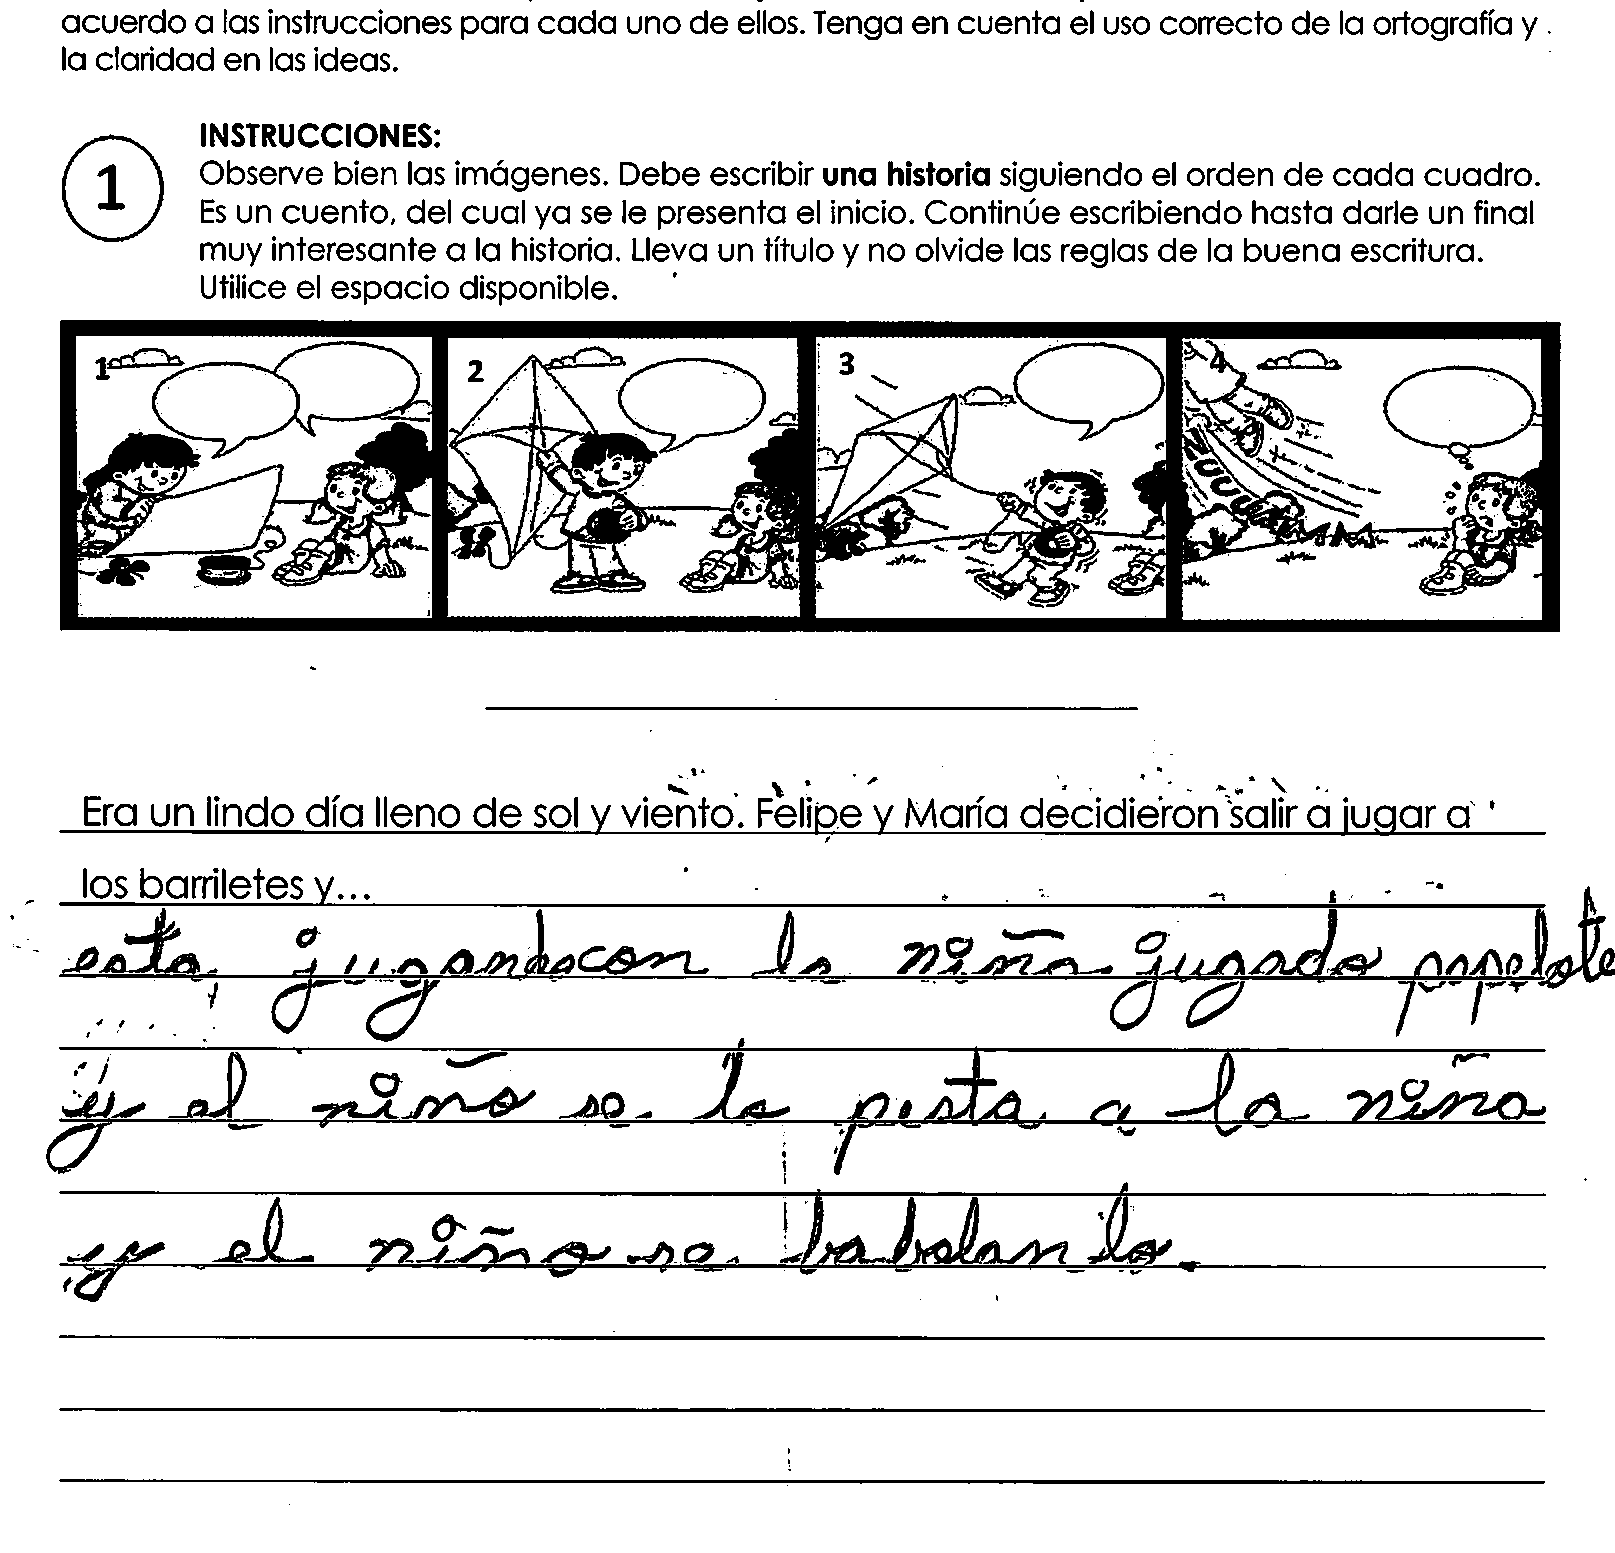 acuerdo a las instrucciones para cada uno de ellos. Tenga en cuenta el uso correcto de la ortografía y
la claridad en las ideas.
1
INSTRUCCIONES:
Observe bien las imágenes. Debe escribir una historia siguiendo el orden de cada cuadro.
Es un cuento, del cual ya se le presenta el inicio. Continúe escribiendo hasta darle un final
muy interesante a la historia. Lleva un título y no olvide las reglas de la buena escritura.
Utilice el espacio disponible.
1 2 3 4
Era un lindo día lleno de sol y viento. Felipe y María decidieron salir a jugar a
los barriletes y...
esta jugandocon la niña jugado papelote
y el niño se lo pesta a la niña
y el niño se babolan lo.